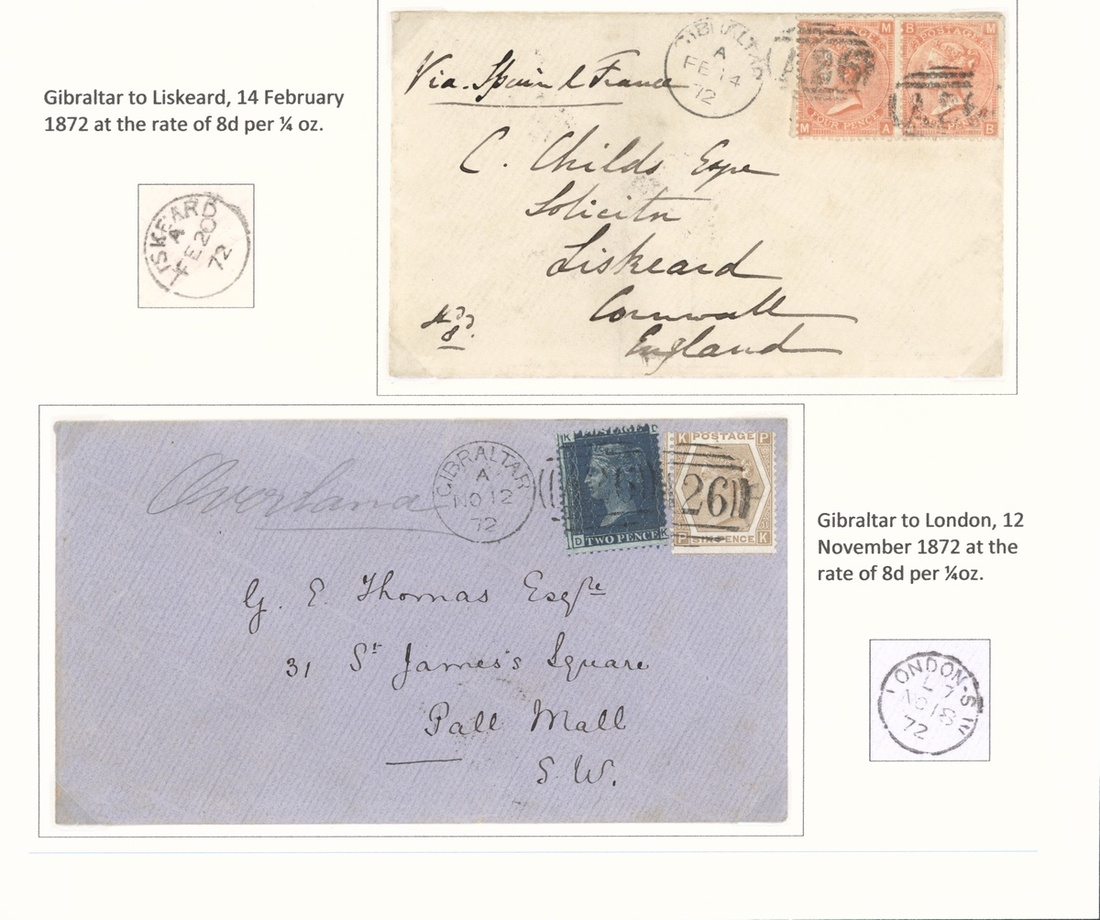 Gibraltar to Liskeard, 14 February
1872 at the rate of 8d per ¼ oz.
LISKEARD
A
FE 20
72
Via. Spain & France
GIBRALTAR
A
FE 14
72
A26
M
FOUR PENCE
M A
B POSTAGE M
B
C. Childs Esqre
Solicitor
Liskeard
Cornwall
England
8
Overland
GIBRALTAR
A
NO 12
72
K
D TWO PENCE K
K POSTAGE P
26
P SIX PENCE K
G. E. Thomas Esqre
31 St James's Square
Pall Mall
S. W.
Gibraltar to London, 12
November 1872 at the
rate of 8d per ¼oz.
LONDON-S.W
L 7
NO 18
72